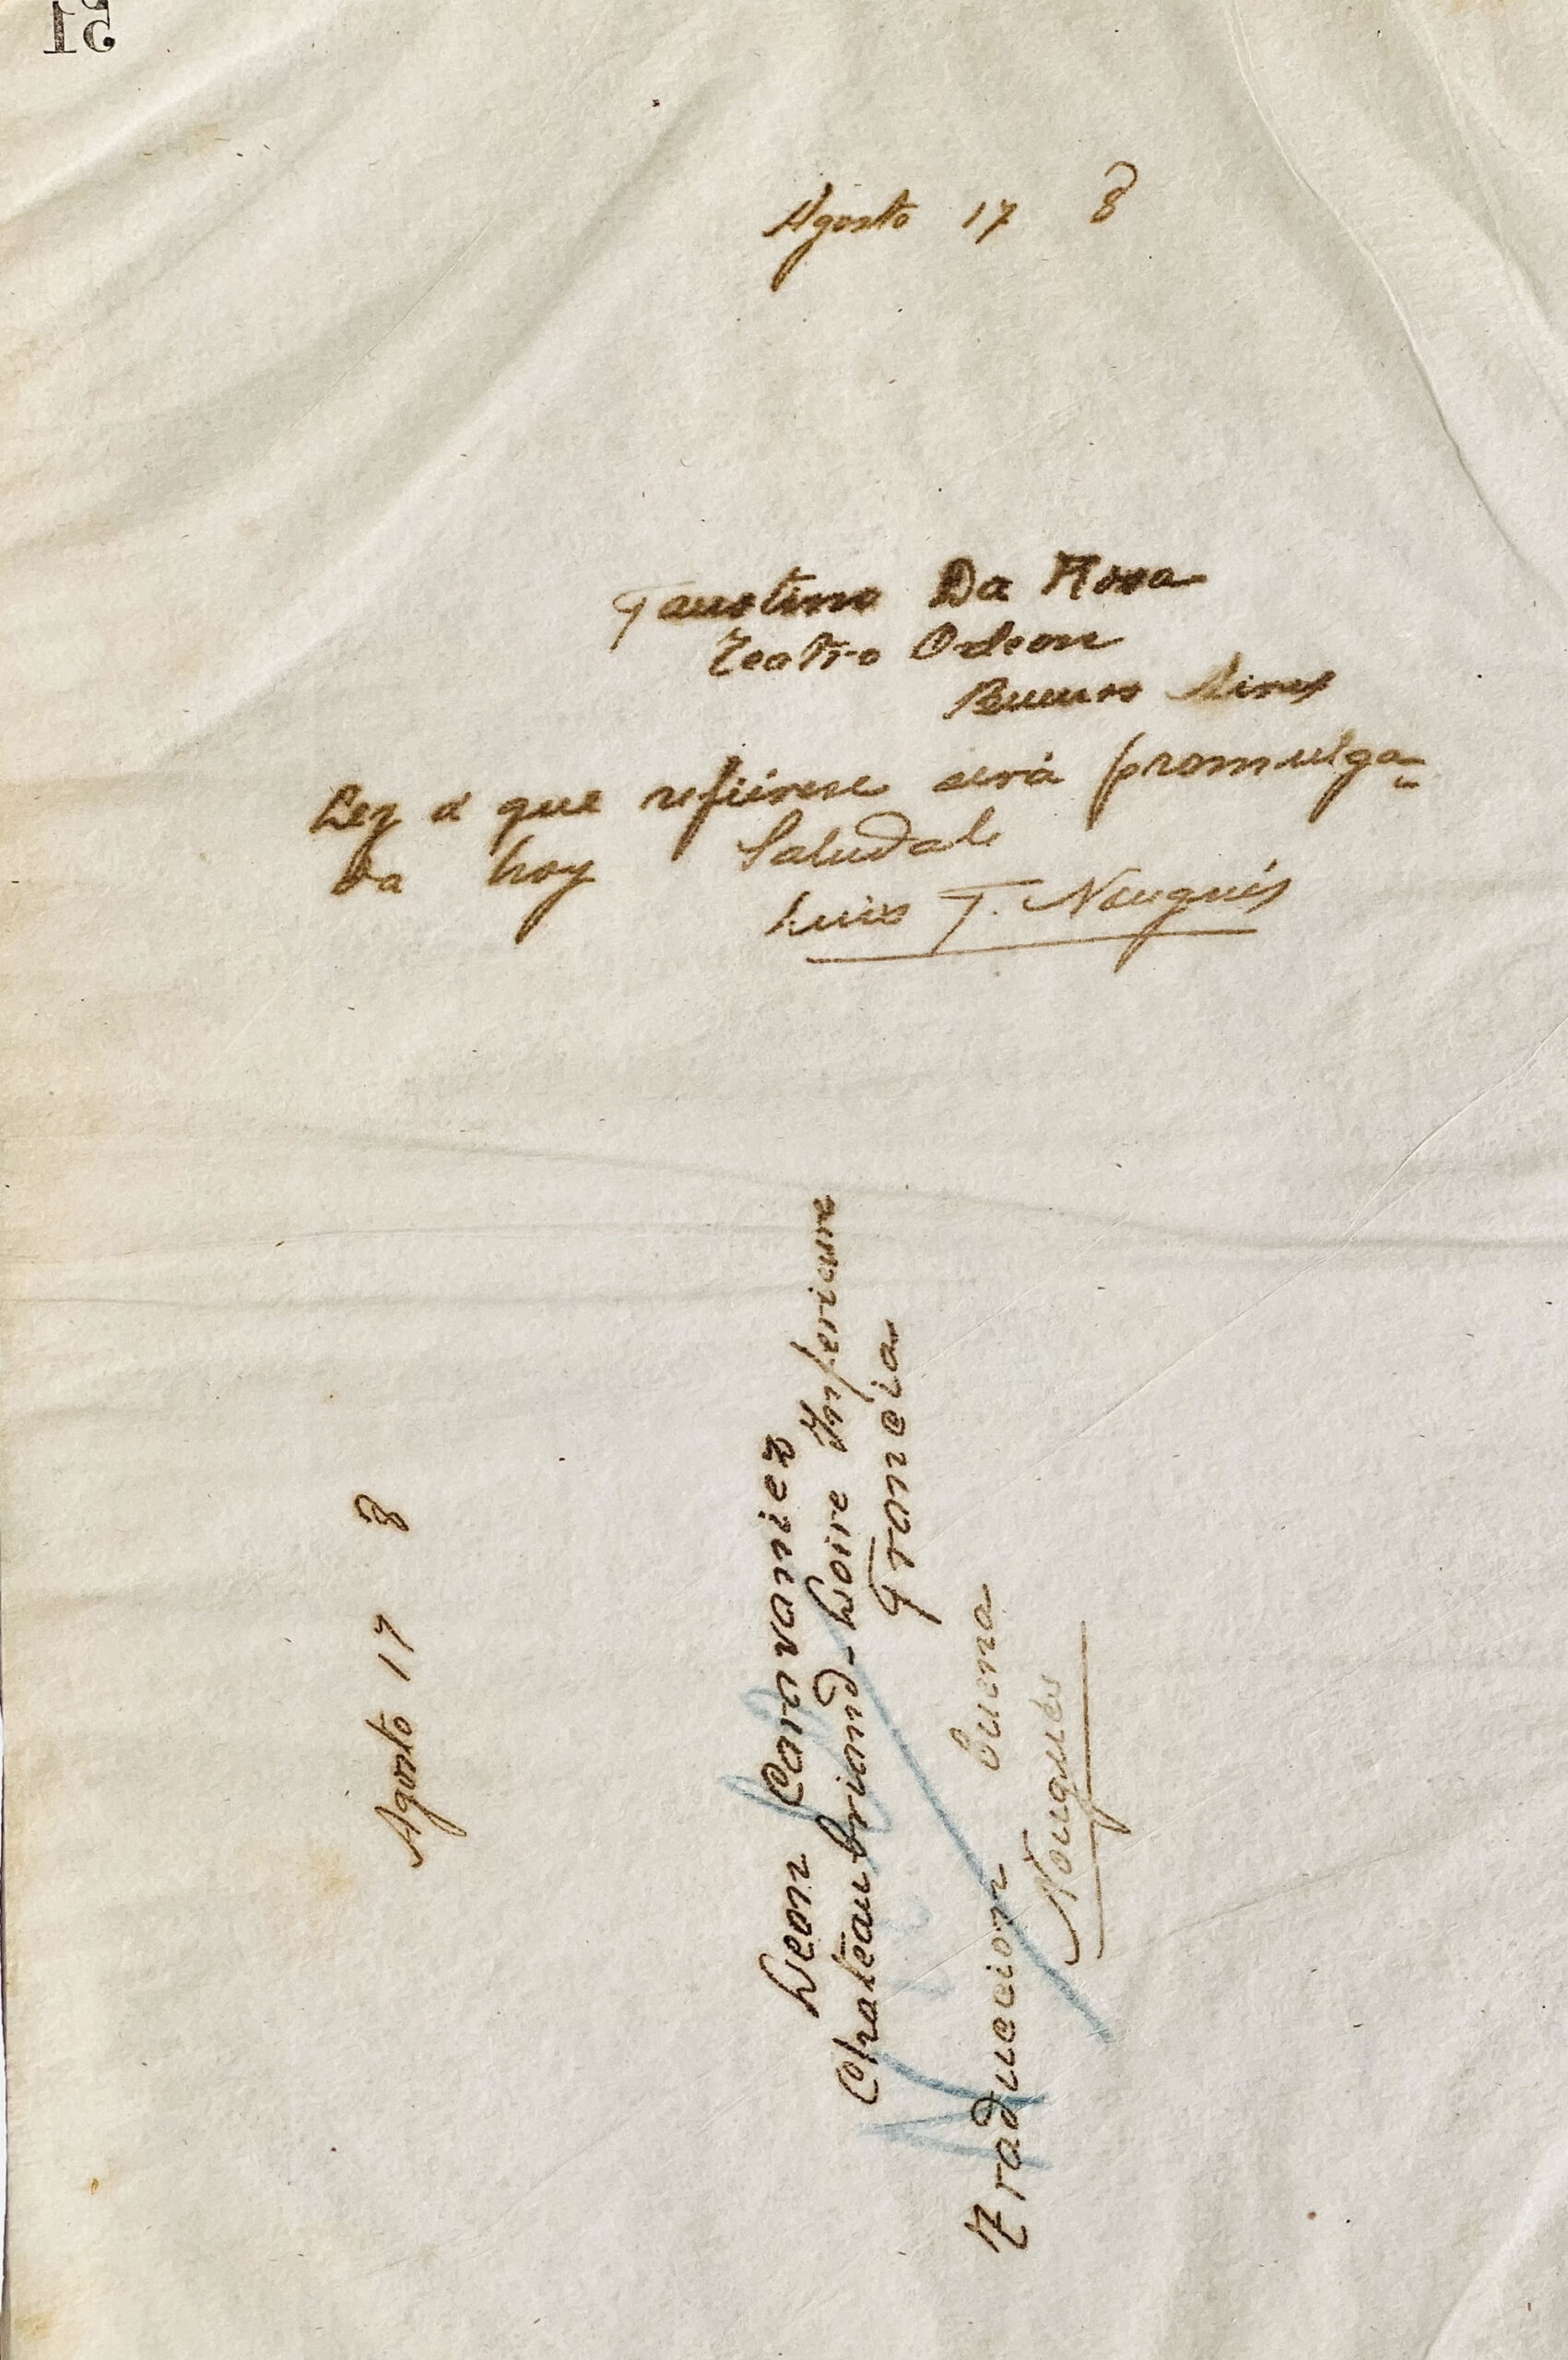 51
Agosto 17 8
Faustino Da Rosa
Teatro Odeon
Buenos Aires
Ley á que refiérese será promulga=
da hoy Saludale
Luis F. Nougués
Agosto 17 8
Leon Cauvaniez
Chateaubriand-Loire Inferieure
Francia
Traduccion buena
Nougués